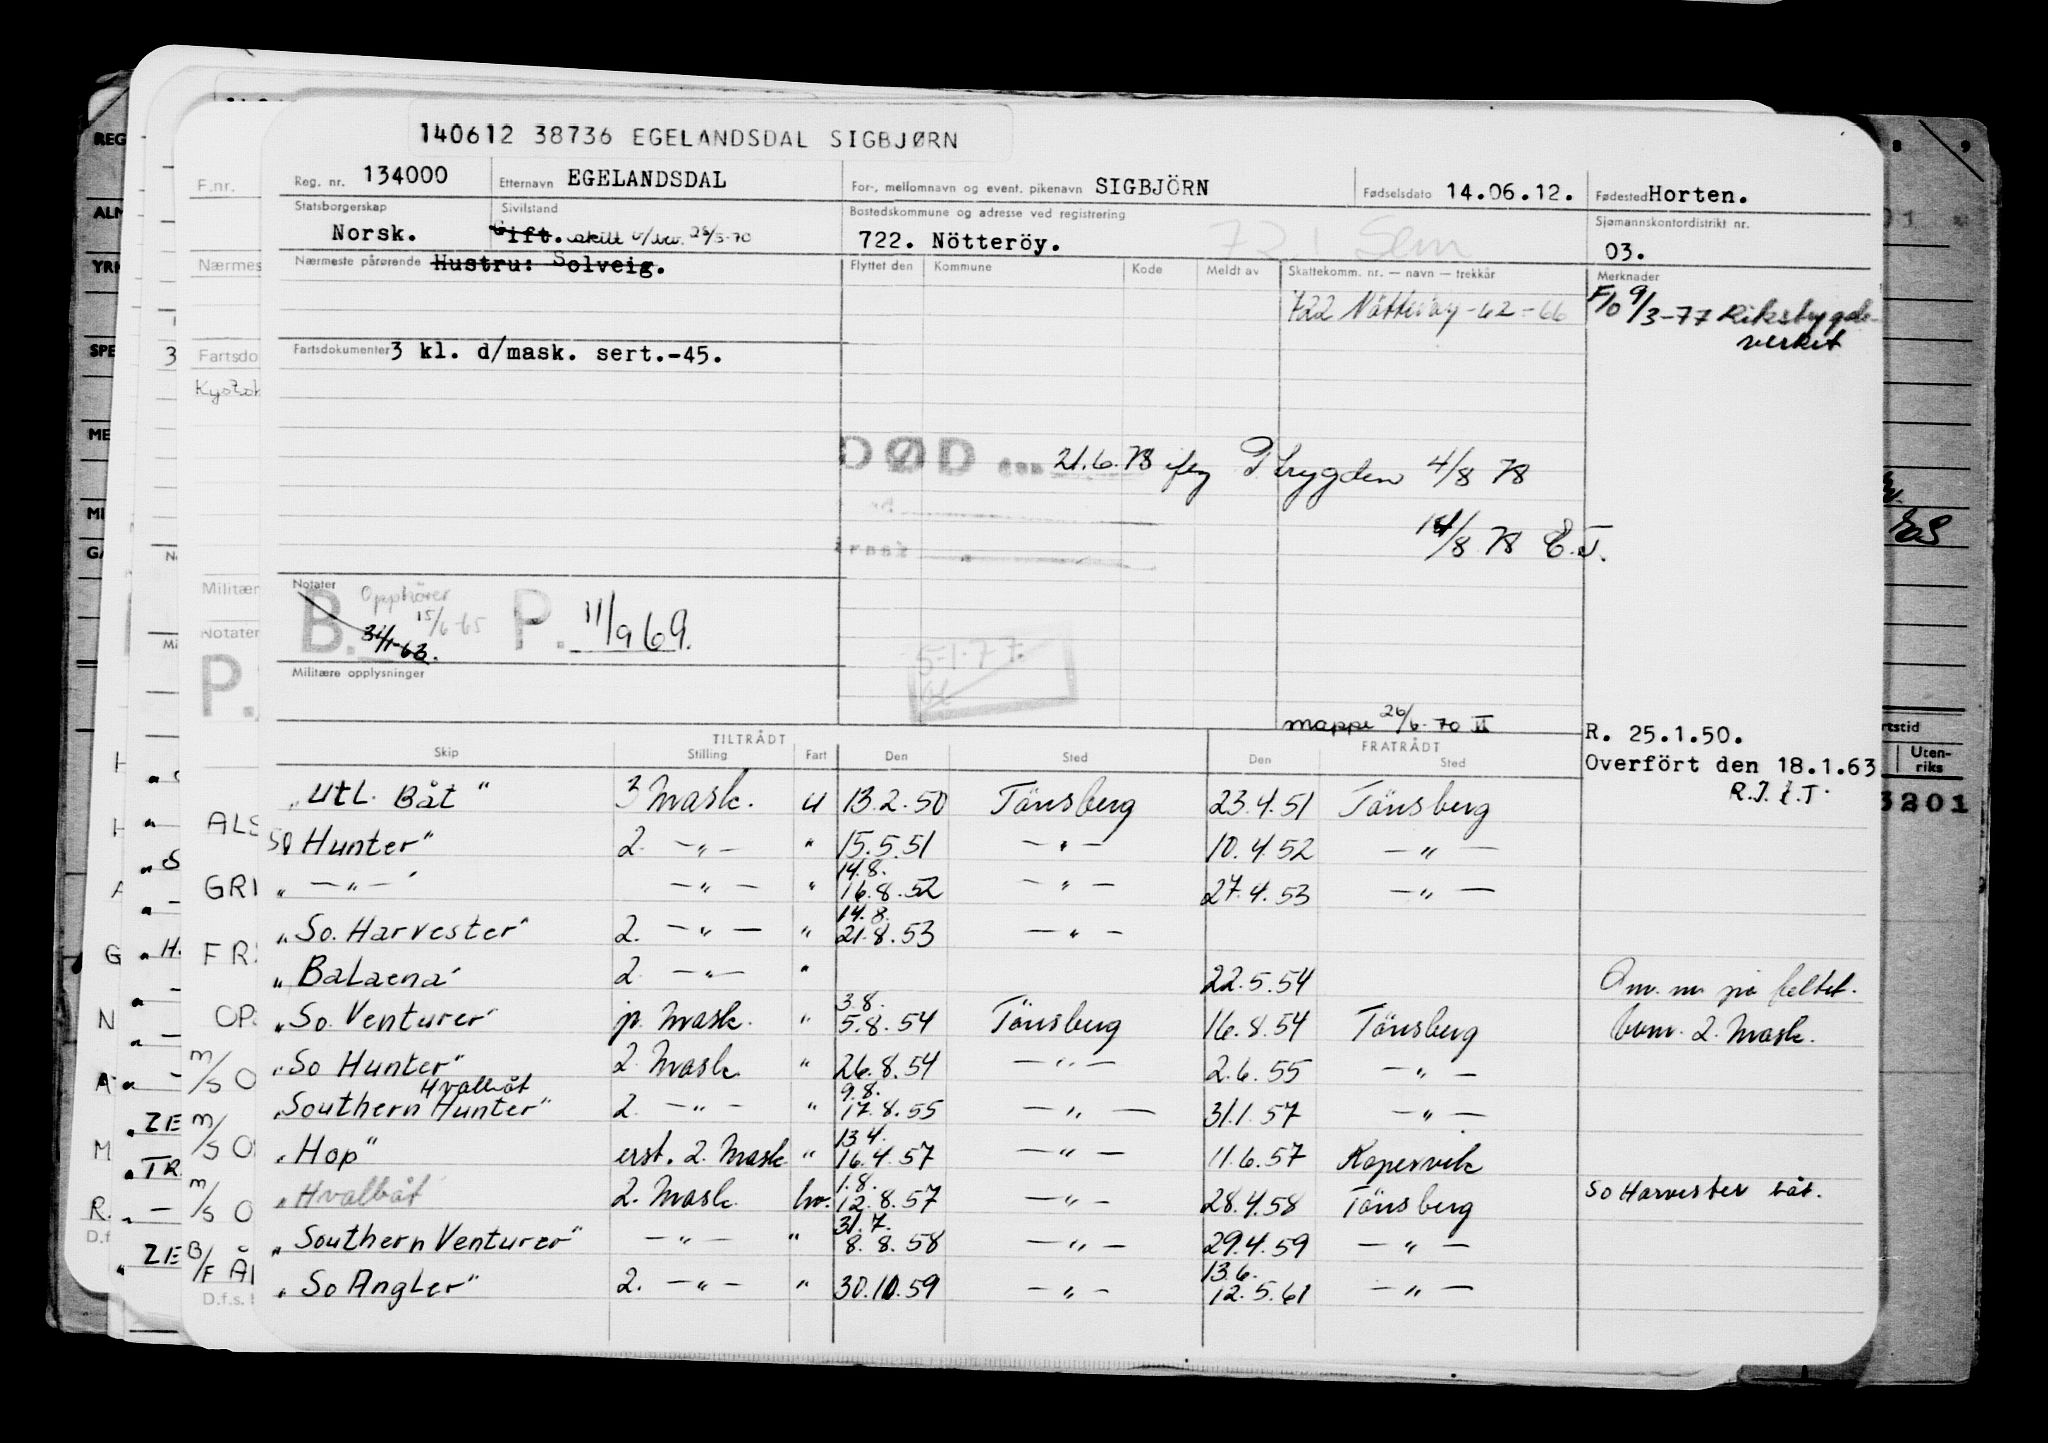 140612 38736 EGELANDSDAL SIGBJØRN
Reg. nr. 134000 Etternavn EGELANDSDAL For-, mellomnavn og event. pikenavn SIGBJÖRN Fødselsdato 14.06.12. Fødested Horten.
Statsborgerskap Sivilstand Bostedskommune og adresse ved registrering Sjømannskontordistrikt nr.
Norsk. Gift. skill 722. Nötteröy. Sem 03.
Nærmeste pårørende Hustru: Solveig. Flyttet den Kommune Kode Meldt av Skattekomm. nr. — navn — trekkår Merknader
722 Nötteröy -62-66 F/0 9/3-77 Rikstrygde-
verket
Fartsdokumenter 3 kl. d/mask. sert.-45.
DØD den 21.6.78 iflg P.trygden 4/8 78
14/8 78 E.J.
Notater
B. Opphører 15/6-65 P. 11/9 69.
31/1-63.
5-1-77.
Militære opplysninger
mappe 26/6-70 II
R. 25.1.50.
Overfört den 18.1.63
TILTRÅDT FRATRÅDT
Skip Stilling Fart Den Sted Den Sted
"Utl. Båt" 3 Mask. u 13.2.50 Tönsberg 23.4.51 Tönsberg
So Hunter" 2. —"— " 15.5.51 —"— 10.4.52 —"—
" —"—" —"— " 14.8. 16.8.52 —"— 27.4.53 —"—
"So. Harvester" 2. —"— " 14.8. 21.8.53 —"—
"Balaena" 2 —"— " 22.5.54 på feltet.
"So. Venturer" jr. Mask. " 3.8. 5.8.54 Tönsberg 16.8.54 Tönsberg 2. Mask.
"So Hunter" 2. Mask. " 26.8.54 —"— 2.6.55 —"—
"Southern Hunter" Hvalbåt 2. —"— " 9.8. 17.8.55 —"— 31.1.57 —"—
"Hop" erst. 2. Mask. " 13.4. 16.4.57 —"— 11.6.57 Kopervik
"Hvalbåt 2. Mask. hv. 1.8. 12.8.57 —"— 28.4.58 Tönsberg So Harvester båt.
"Southern Venturer" —"— " 31.7. 8.8.58 —"— 29.4.59 —"—
"So Angler" 2. —"— " 30.10.59 —"— 13.6. 12.5.61 —"—